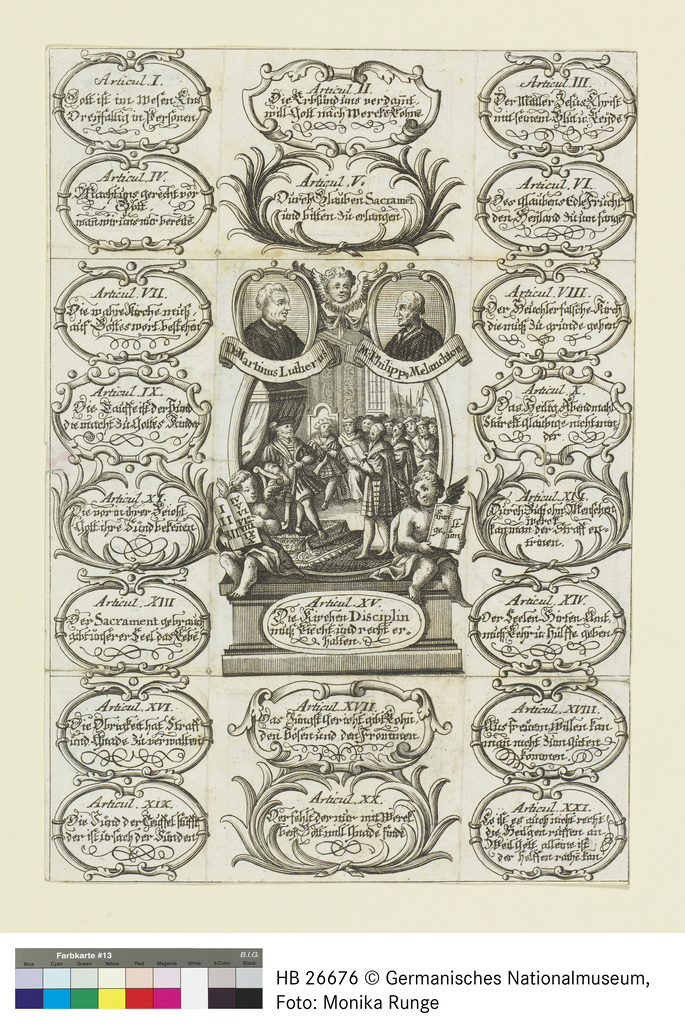 Articul. I.
Gott ist im Wesen Eins
Dreyfaltig in Personen
Articul II.
Die Erbsünd uns verdamt
will Gott nach Wercke Lohne
Articul. III.
Der Mitler Jesus Christ
mit seinem Blut u: Leyde
Articul. IV.
Macht uns gerecht vor
Gott
wan wir uns nur bereite
Articul. V.
Durch Glauben Sacramet
und bitten zu erlangen
Articul. VI.
Des Glaubens Edle Frucht
den Heyland zu um fange
Articul. VII.
Die wahre Kirche muß
auf Gottes wort bestehen
Articul. VIII.
Der Heuchler falsche Kirch
die muß zu grunde gehen
D. Martinus Luther
Philipp, Melanchton
Articul. IX.
Die Tauffe ist der Bund
die macht zu Gottes Kinder
Articul. X.
Das Heilig Abendmahl
stürckt Gläubige nicht min
der
Articul. XI.
Die vor in ihrer Beicht
Gott ihre Sünd bekenen
Articul. XII.
Durch Buß ohn Menschen
werck
kan man der Straff en-
trinen.
I
II
IV
V
VI
IX
Evan
ge-
lium
Articul. XIII
Der Sacrament gebrauch
gibt unserer Seel das Lebe
Articul. XIV.
Der Seelen Hirten Amt
muß Lehr u: Hülffe geben
Articul. XV.
Die Kirchen Disciplin
muß Zucht und recht er-
halten.
Articul. XVI.
Die Obrigkeit hat Straff
und Gnade zu verwalten
Articul. XVII.
Das Jüngst Gericht gibt Lohn
den bösen und den Frommen
Articul. XVIII.
Aus freuem Willen kan
man nicht zum Guten
kommen
Articul. XIX.
Die Sünd der Teuffel stifft
der ist ursach der Sünden
Articul. XX.
Der fehlt der nur mit Werck
beÿ Gott will Gnade finde
Articul. XXI.
So ist es auch nicht recht
die Heilgen ruffen an
Weil Gott alleine ist
der helffen rathe kan
Farbkarte #13
B.I.G.
Blue Cyan Green Yellow Red Magenta White 3/Color Black
HB 26676 © Germanisches Nationalmuseum,
Foto: Monika Runge